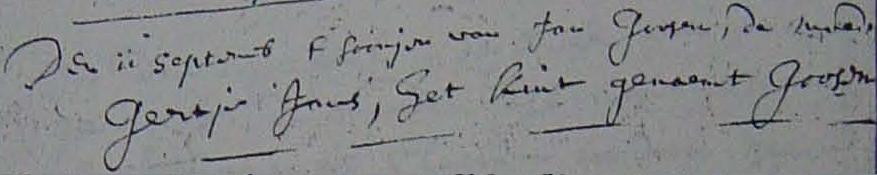 Den 11 Septemb t soontjen van Jan Joosen, de moed.
Gertje Jans, het kint genaemt Joosen